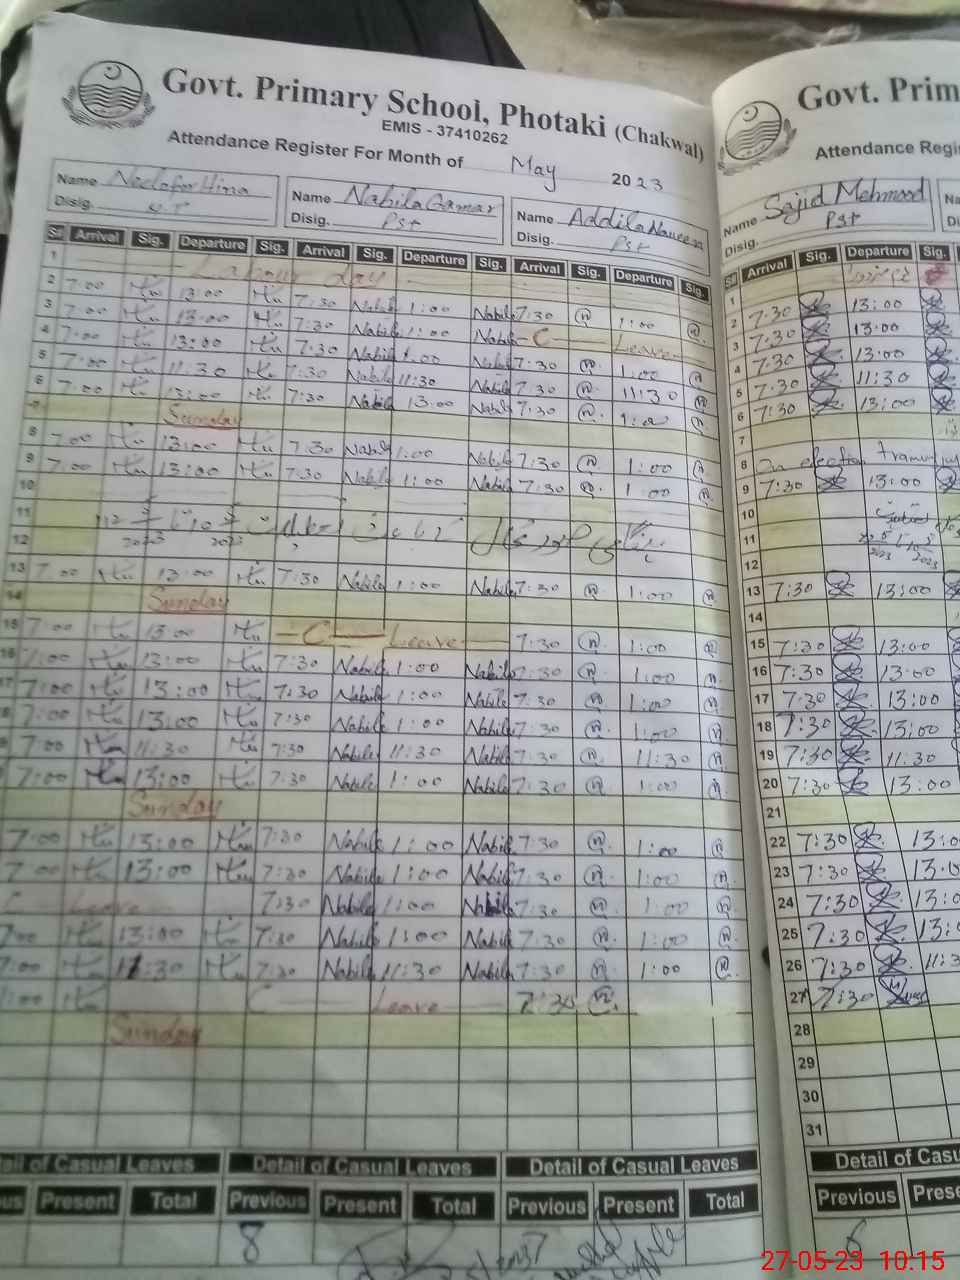 Govt. Primary School, Photaki (Chakwal)
EMIS - 37410262
Attendance Register For Month of May 2023
Name Neelofer Hina Name Nabila Qamar Name Addila Naureen
Disig. Disig. Pst Disig. Pst
S# Arrival Sig. Departure Sig. Arrival Sig. Departure Sig. Arrival Sig. Departure Sig.
1 Labour day
2 7:00 13:00 7:30 Nabila 1:00 Nabila 7:30 1:00
3 7:00 13:00 7:30 Nabila 1:00 Nabila C Leave
4 7:00 13:00 7:30 Nabila 1:00 Nabila 7:30 1:00
5 7:00 11:30 7:30 Nabila 11:30 Nabila 7:30 11:30
6 7:00 13:00 7:30 Nabila 13:00 Nabila 7:30 1:00
7 Sunday
8 7:00 13:00 7:30 Nabila 1:00 Nabila 7:30 1:00
9 7:00 13:00 7:30 Nabila 1:00 Nabila 7:30 1:00
10
11
12
13 7:00 13:00 7:30 Nabila 1:00 Nabila 7:30 1:00
14 Sunday
15 7:00 13:00 C Leave 7:30 1:00
16 7:00 13:00 7:30 Nabila 1:00 Nabila 7:30 1:00
17 7:00 13:00 7:30 Nabila 1:00 Nabila 7:30 1:00
7:00 13:00 7:30 Nabila 1:00 Nabila 7:30 1:00
7:00 11:30 7:30 Nabila 11:30 Nabila 7:30 11:30
7:00 13:00 7:30 Nabila 1:00 Nabila 7:30 1:00
Sunday
7:00 13:00 7:30 Nabila 1:00 Nabila 7:30 1:00
7:00 13:00 7:30 Nabila 1:00 Nabila 7:30 1:00
C Leave 7:30 Nabila 1:00 Nabila 7:30 1:00
7:00 13:00 7:30 Nabila 1:00 Nabila 7:30 1:00
7:00 11:30 7:30 Nabila 11:30 Nabila 7:30 1:00
7:00 C Leave 7:30
Sunday
Detail of Casual Leaves Detail of Casual Leaves Detail of Casual Leaves
Present Total Previous Present Total Previous Present Total
8
Govt. Prim
Attendance Regi
Name Sajid Mehmood
Disig. Pst
S# Arrival Sig. Departure Sig.
1
2 7:30 13:00
3 7:30 13:00
4 7:30 13:00
5 7:30 11:30
6 7:30 13:00
7
8 On election
9 7:30 13:00
10
11
12
13 7:30 13:00
14
15 7:30 13:00
16 7:30 13:00
17 7:30 13:00
18 7:30 13:00
19 7:30 11:30
20 7:30 13:00
21
22 7:30 13:0
23 7:30 13:0
24 7:30 13:0
25 7:30 13:
26 7:30 11:3
27 7:30
28
29
30
31
Detail of Casu
Previous Prese
6
27-05-23 10:15